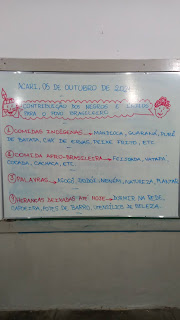 ACARI, 05 DE OUTUBRO DE 200
CONTRIBUIÇÃO DOS NEGROS E
PARA O POVO BRASILEIRO
1 COMIDAS INDÍGENAS → MANDIOCA, GUARANÁ, PURÊ
DE BATATA, CHÁ DE ERVAS, PEIXE FRITO, ETC
2 COMIDA AFRO-BRASILEIRA → FEIJOADA, VATAPÁ,
COCADA, CACHAÇA, ETC.
3 PALAVRAS →
4 HERANÇAS DEIXADAS ATÉ HOJE → DORMIR NA REDE,
CAPOEIRA, POTES DE BARRO, UTENSÍLIOS DE BELEZA